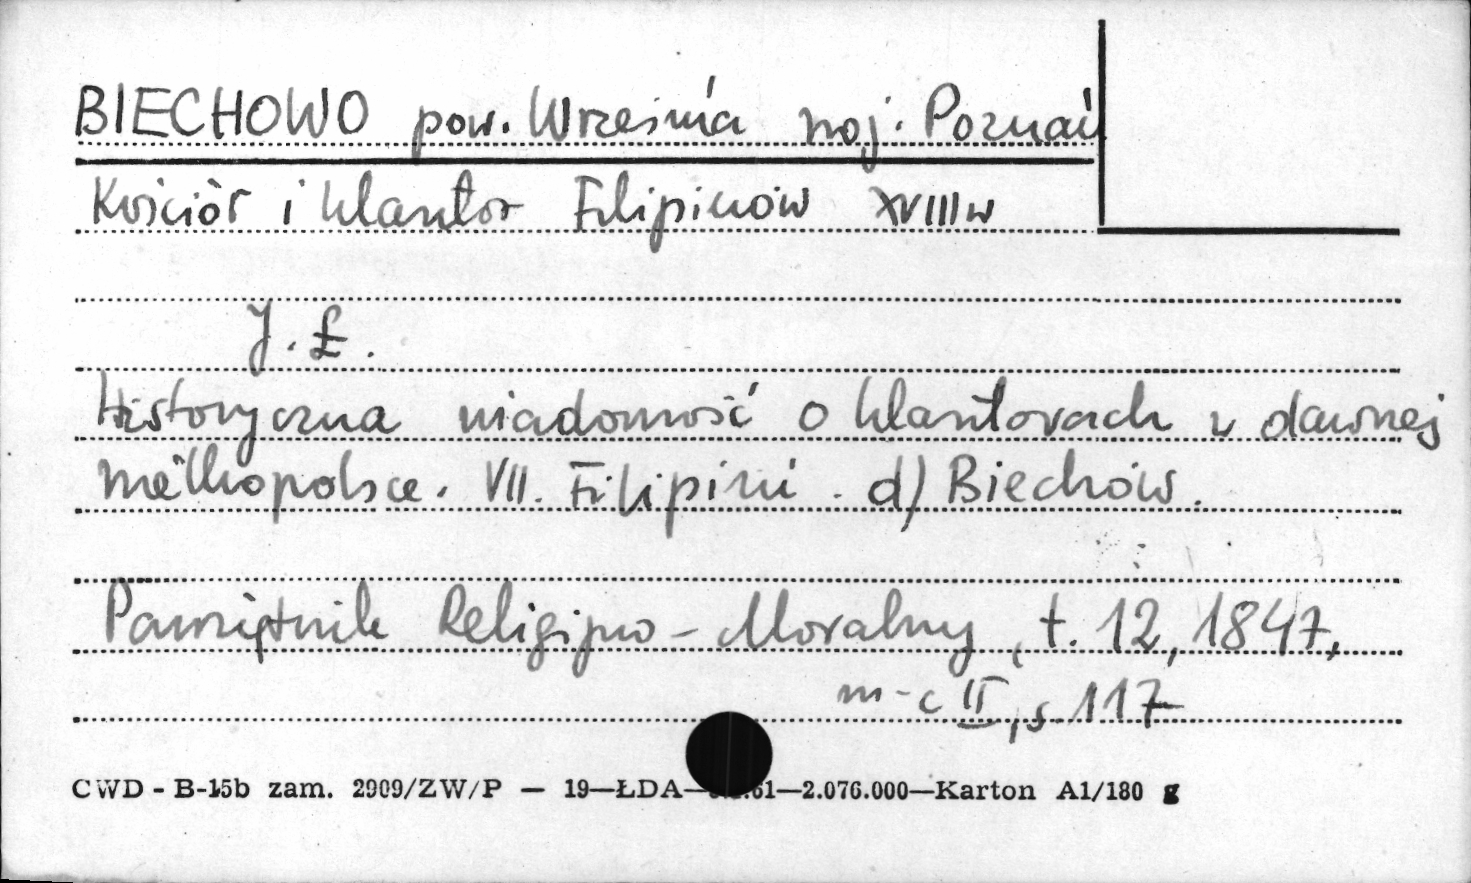 BIECHOWO pow. Września woj. Poznań
Kościół i klasztor Filipinów XVIII w
J. Ł.
Historyczna wiadomość o klasztorach w dawnej
Wielkopolsce. VII. Filipini. d) Biechów.
Pamiętnik Religijno-Moralny, t. 12, 1847,
m-c II, s. 117
CWD - B-15b zam. 2909/ZW/P — 19—ŁDA— 61—2.076.000—Karton A1/180 g